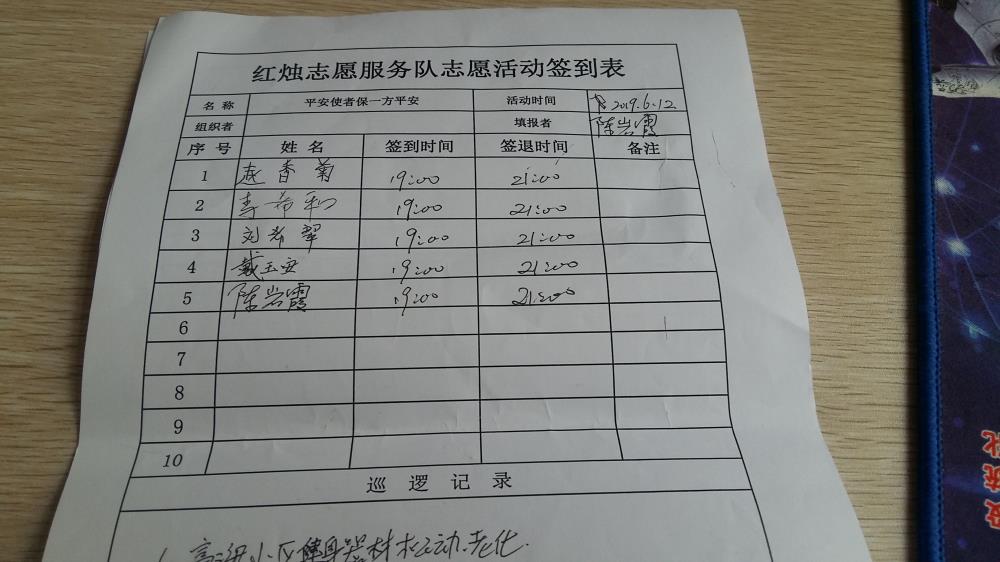 红烛志愿服务队志愿活动签到表
名称 平安使者保一方平安 活动时间 2019.6.12
组织者 填报者 陈岩霞
序号 姓名 签到时间 签退时间 备注
1 赵香菊 19:00 21:00
2 李希和 19:00 21:00
3 刘希翠 19:00 21:00
4 戴玉安 19:00 21:00
5 陈岩霞 19:00 21:00
6
7
8
9
10
巡逻记录
小区健身器材松动.老化.